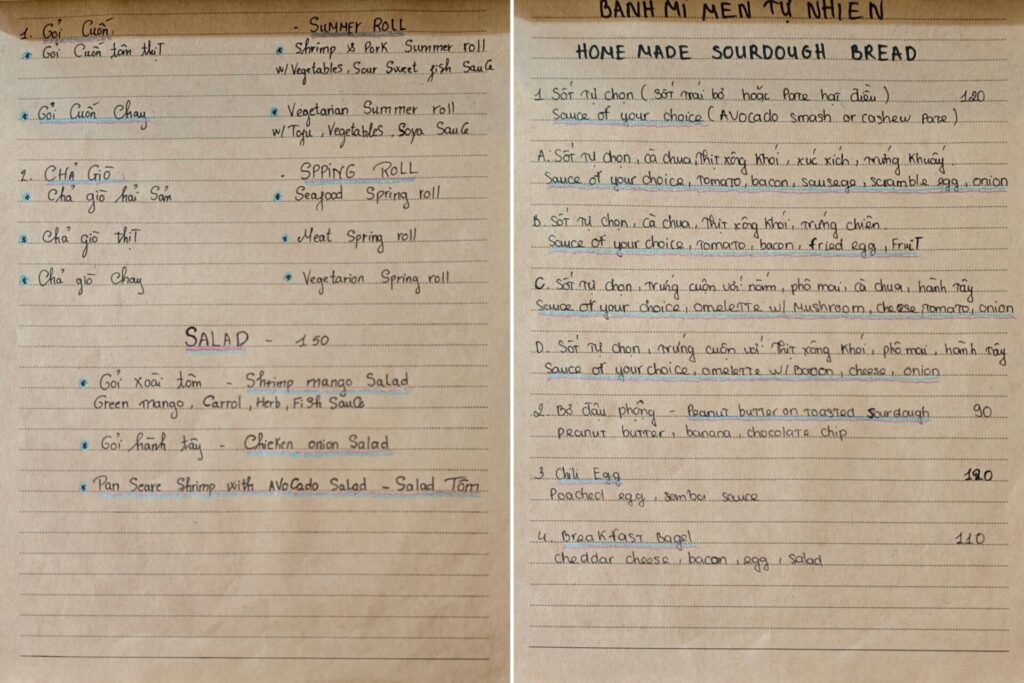 1. Gỏi Cuốn - SUMMER ROLL
* Gỏi Cuốn tôm thịt * Shrimp & Pork Summer roll
w/ Vegetables, Sour Sweet fish Sauce
* Gỏi Cuốn Chay * Vegetarian Summer roll
w/ Tofu, Vegetables, Soya Sauce
2. CHẢ GIÒ - SPPING ROLL
* Chả giò hải sản * Seafood Spring roll
* Chả giò thịt * Meat Spring roll
* Chả giò Chay * Vegetarian Spring roll
SALAD - 150
* Gỏi xoài tôm - Shrimp mango Salad
Green mango, Carrol, Herb, Fish Sauce
* Gỏi hành tây - Chicken onion Salad
* Pan Seare Shrimp with Avocado Salad - Salad Tôm
BÁNH MÌ MEN TỰ NHIÊN
HOME MADE SOURDOUGH BREAD
1. Sốt tự chọn (Sốt trái bơ hoặc Pate hạt điều) 120
Sauce of your choice (Avocado smash or cashew Pate)
A. Sốt tự chọn, cà chua, thịt xông khói, xúc xích, trứng khuấy
Sauce of your choice, tomato, bacon, sausege, scramble egg, onion
B. Sốt tự chọn, cà chua, thịt xông khói, trứng chiên.
Sauce of your choice, tomato, bacon, fried egg, Fruit
C. Sốt tự chọn, trứng cuộn với nấm, phô mai, cà chua, hành tây
Sauce of your choice, omelette w/ Mushroom, cheese, tomato, onion
D. Sốt tự chọn, trứng cuộn với thịt xông khói, phô mai, hành tây
Sauce of your choice, omelette w/ Bacon, cheese, onion
2. Bơ đậu phộng - Peanut butter on toasted sourdough 90
peanut butter, banana, chocolate chip
3. Chili Egg 120
Poached egg, samba sauce
4. Breakfast Bagel 110
cheddar cheese, bacon, egg, salad